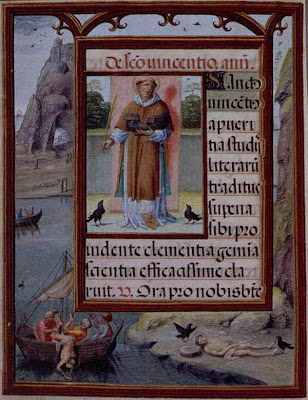 De scō vincentio. anñ.
Sancte
vincēti
a pueri
tia studijs
literarū
traditus
superna
sibi pro
uidente clementia gemia
scientia efficacissime cla
ruit. V. Ora pro nobis bte